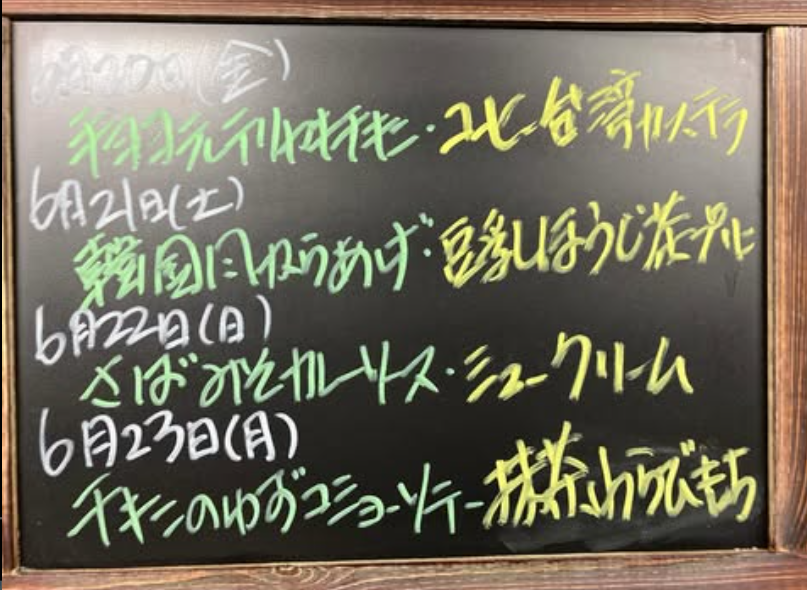 6月20日(金)
テリヤキチキン・コーヒー台湾カステラ
6月21日(土)
韓国風からあげ・豆乳ほうじ茶プリン
6月22日(日)
さばみそカレーソース・シュークリーム
6月23日(月)
チキンのゆずコショーソテー抹茶わらびもち